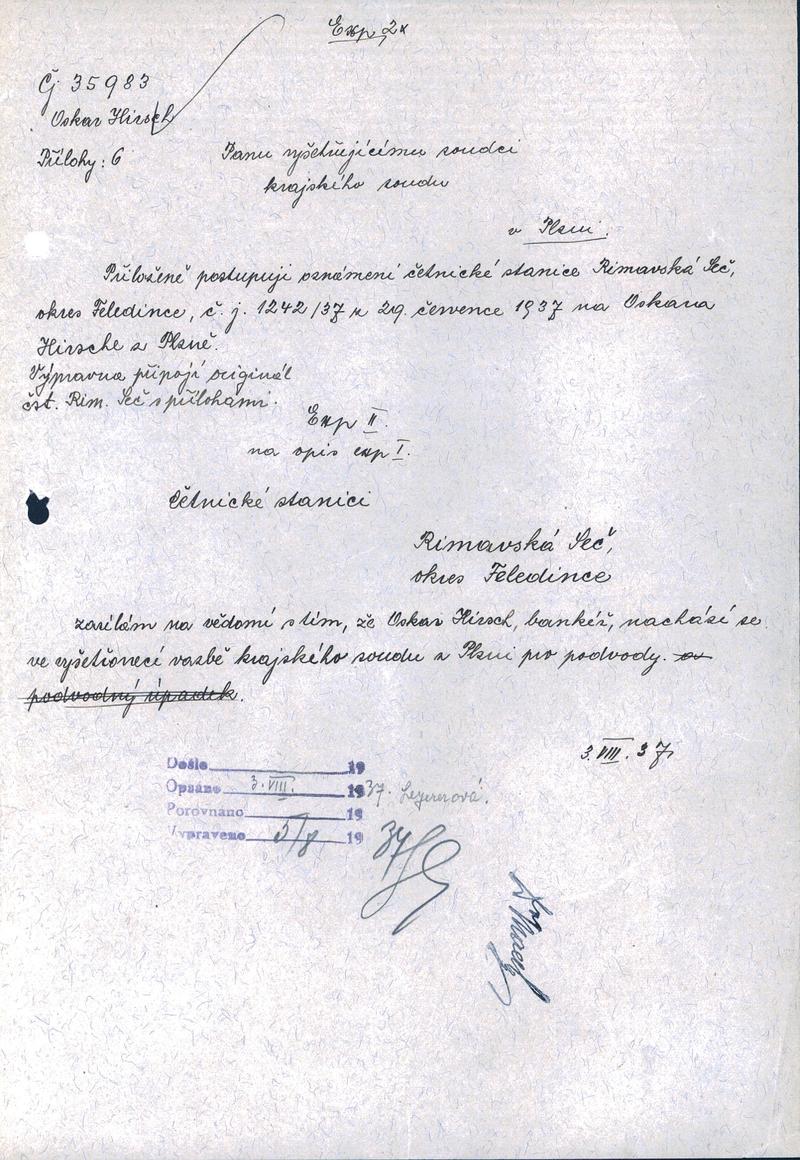 Exp 2x
Čj 35983
Oskar Hirsch
Přílohy: 6
Panu vyšetřujícímu soudci
krajského soudu
v Plzni.
Přiloženě postupuji oznámení četnické stanice Rimavská Seč,
okres Feledince, č. j. 1242/37 z 29. července 1937 na Oskara
Hirsche z Plzně.
Výpravna připojí originál
čst. Rim. Seč s přílohami.
Exp II.
na opis exp I.
Četnické stanici
Rimavská Seč,
okres Feledince
zasílám na vědomí s tím, že Oskar Hirsch, bankéř, nachází se
ve vyšetřovací vazbě krajského soudu v Plzni pro podvody. a
podvodný úpadek.
3. VIII. 37
Došlo 19
Opsáno 3. VIII. 1937.
Porovnáno 19
Vypraveno 5/8 19 37